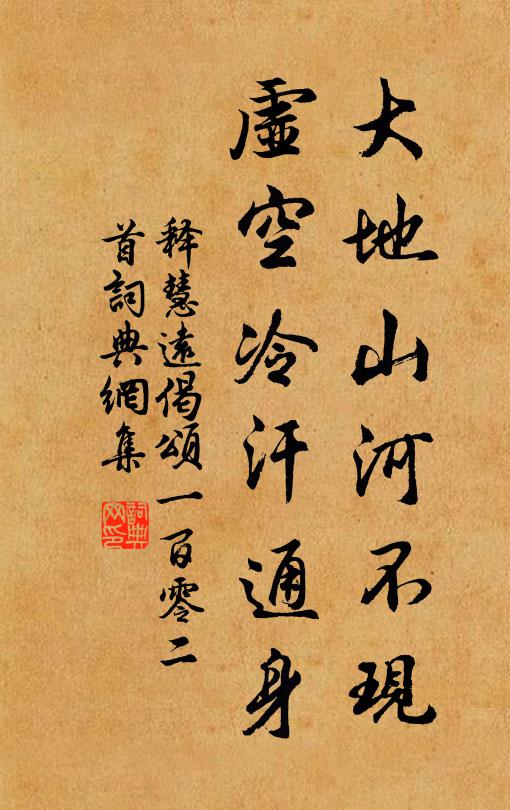 大地山河不現
虛空冷汗通身
释慧遠偈頌一百零二
首詞典網集
詞典
网印